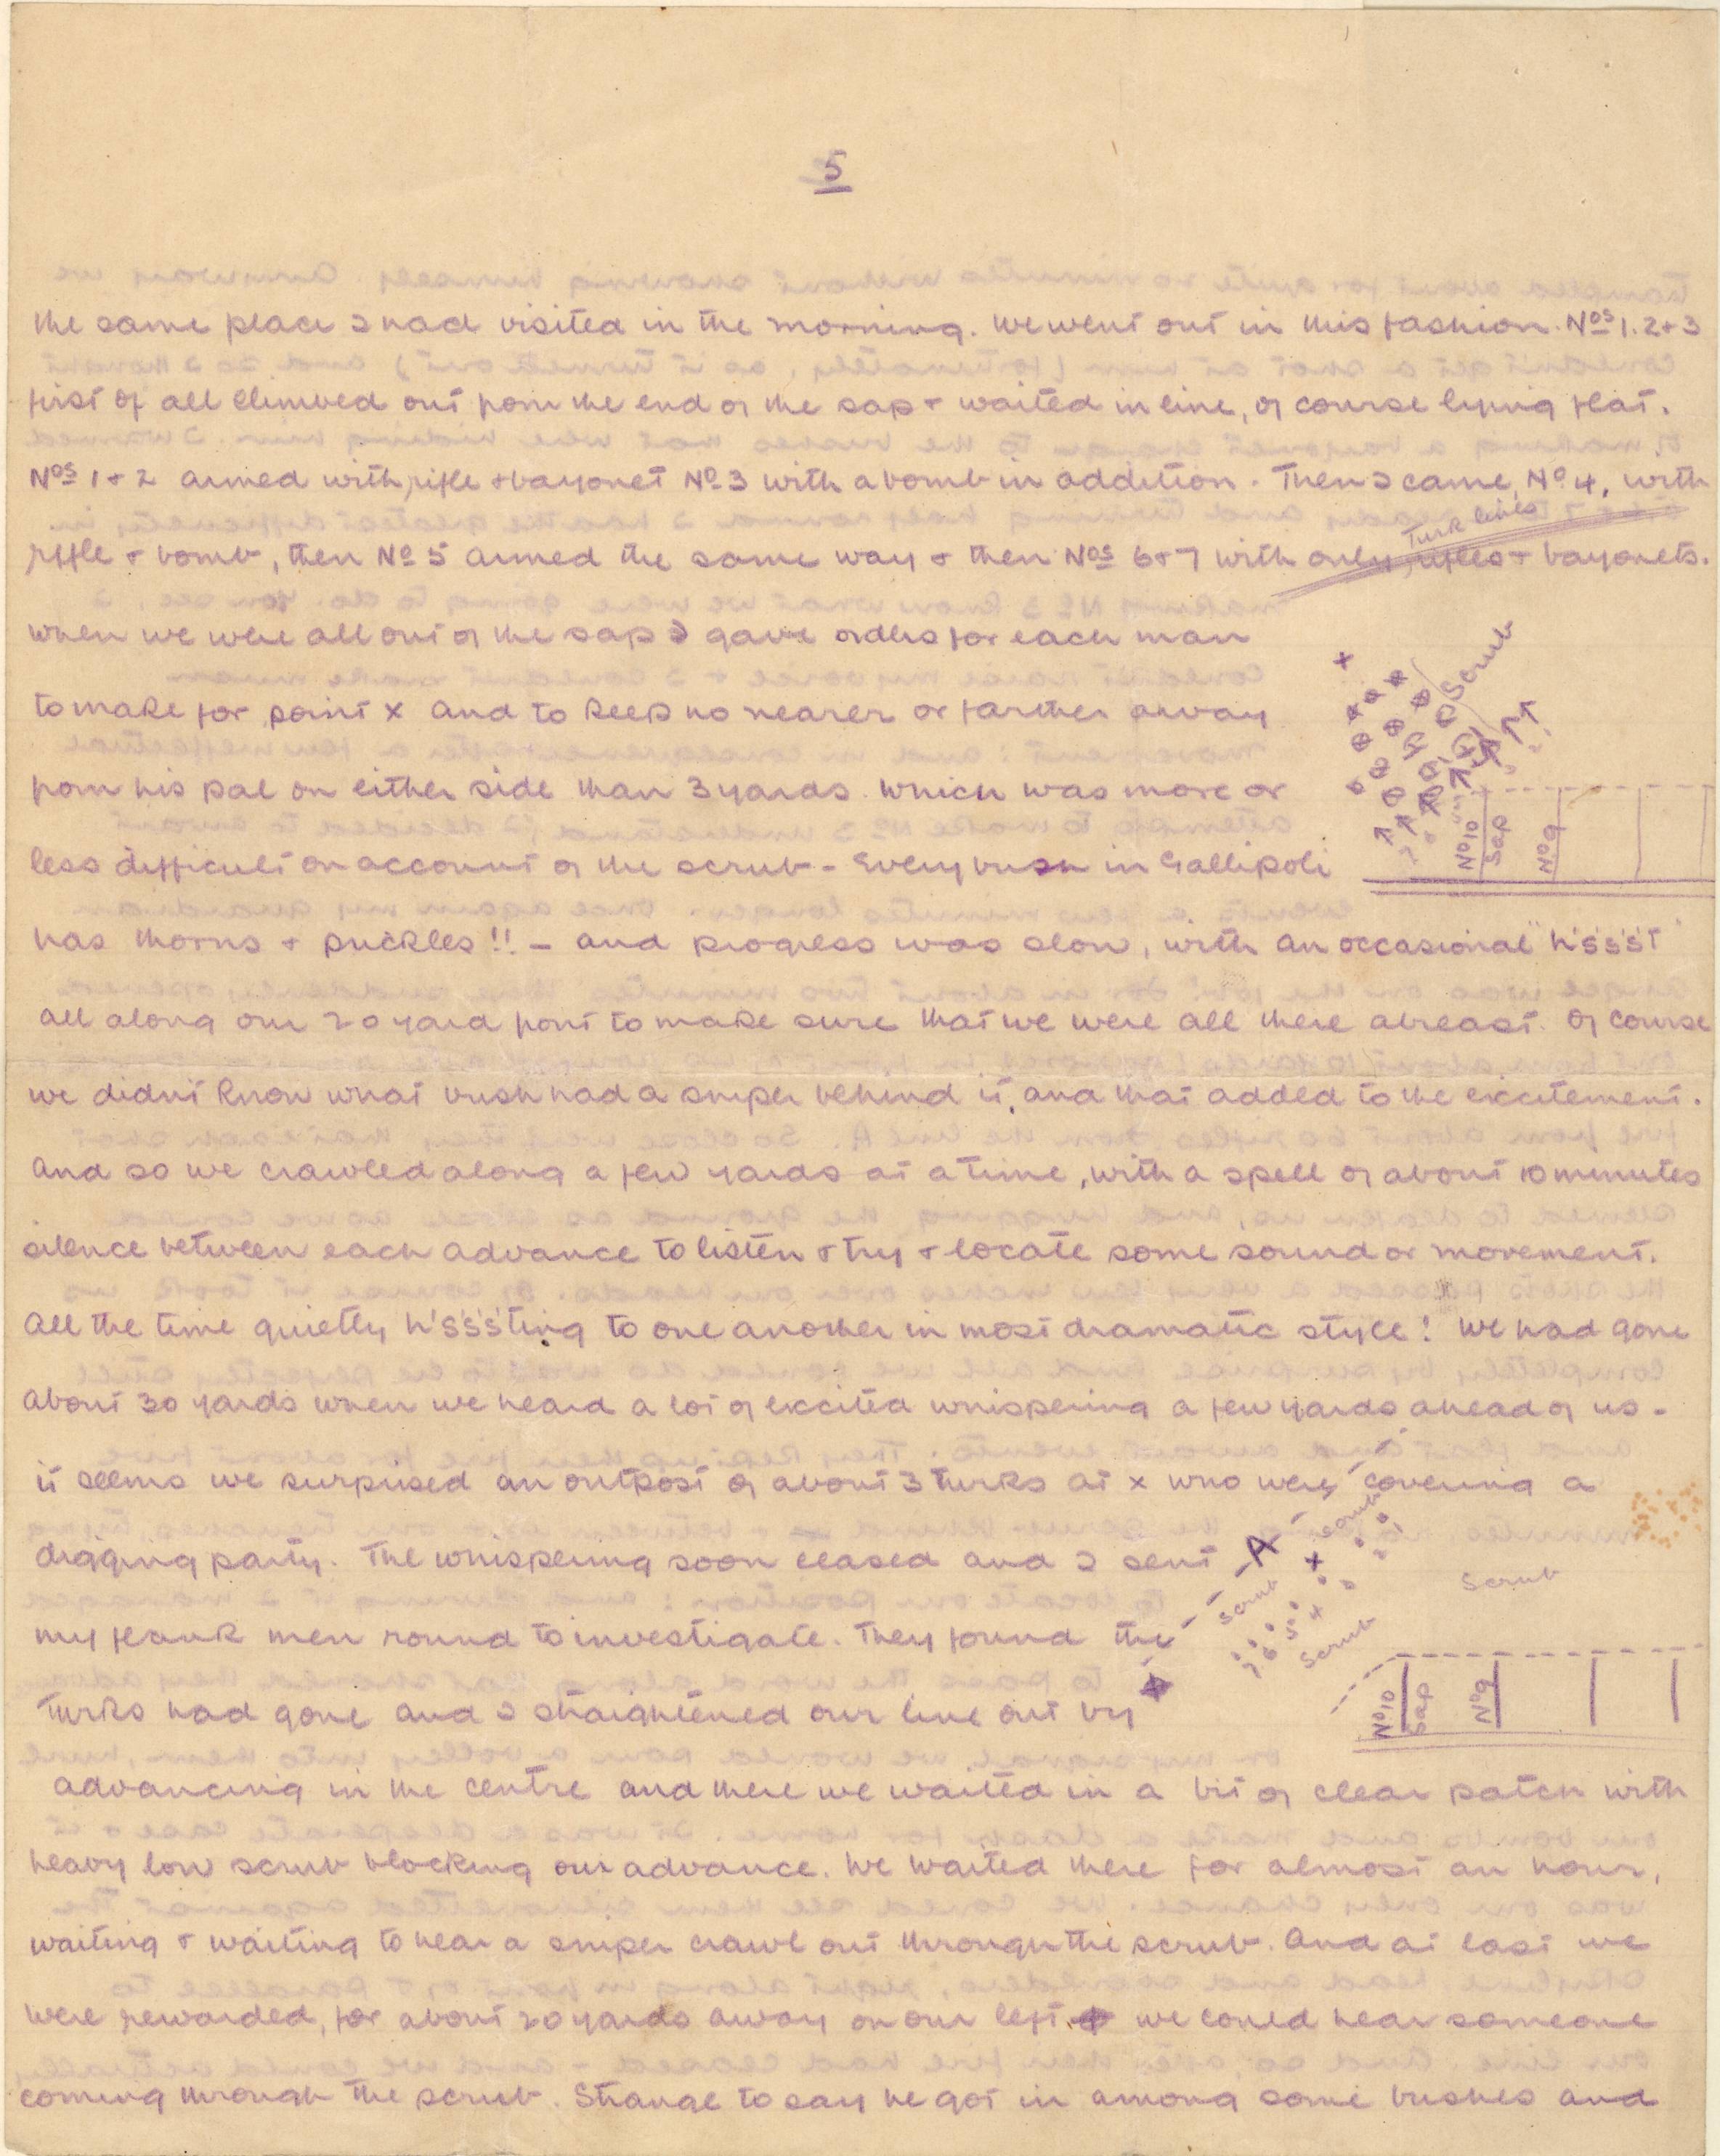 5
the same place I had visited in the morning. We went out in this fashion. Nos 1. 2 + 3
first of all climbed out from the end of the sap + waited in line, of course lying flat.
Nos 1 + 2 armed with rifle + bayonet No 3 with a bomb in addition. Then I came, No 4, with
rifle + bomb, then No 5 armed the same way + then Nos 6 + 7 with only rifles + bayonets.
Turk lines
When we were all out of the sap I gave orders for each man
to make for point x and to keep no nearer or farther away
from his pal on either side than 3 yards. Which was more or
less difficult on account of the scrub - Every bush in Gallipoli
Scrub
No 10
Sap
No 9
has thorns + prickles!! - and progress was slow, with an occasional "h's's's't"
all along our 20 yard front to make sure that we were all there abreast. Of course
we didn't know what bush had a sniper behind it, and that added to the excitement.
And so we crawled along a few yards at a time, with a spell of about 10 minutes
silence between each advance to listen + try + locate some sound or movement.
All the time quietly h's's'sting to one another in most dramatic style! We had gone
about 30 yards when we heard a lot of excited whispering a few yards ahead of us -
it seems we surprised an outpost of about 3 Turks at x who were covering a
digging party. The whispering soon ceased and I sent
my flank men round to investigate. They found the
Turks had gone and I straightened our line out by
A
x
scrub
Scrub
Scrub
Scrub
7 6 5 4
No 10
Sap
No 9
advancing in the centre and there we waited in a bit of clear patch with
heavy low scrub blocking our advance. We waited there for almost an hour,
waiting + waiting to hear a sniper crawl out through the scrub. And at last we
were rewarded, for about 20 yards away on our left we could hear someone
coming through the scrub. Strange to say he got in among some bushes and